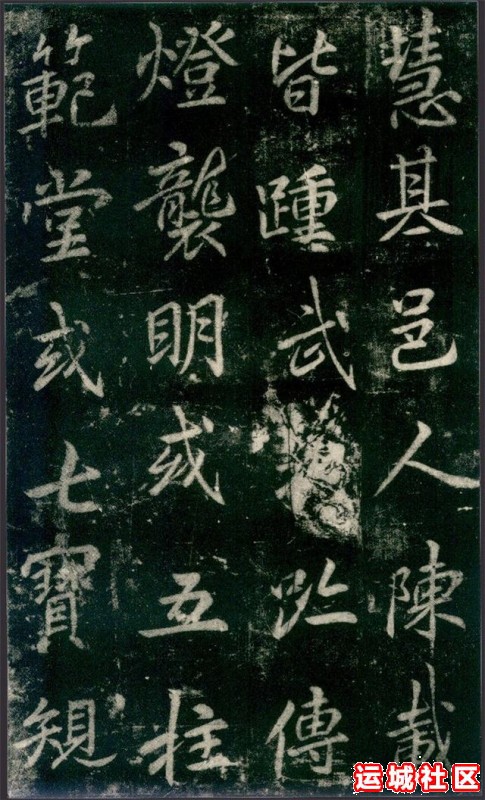 慧其邑人陳載
皆踵武趾傳
燈襲明或五柱
範堂或七寶規
运城社区